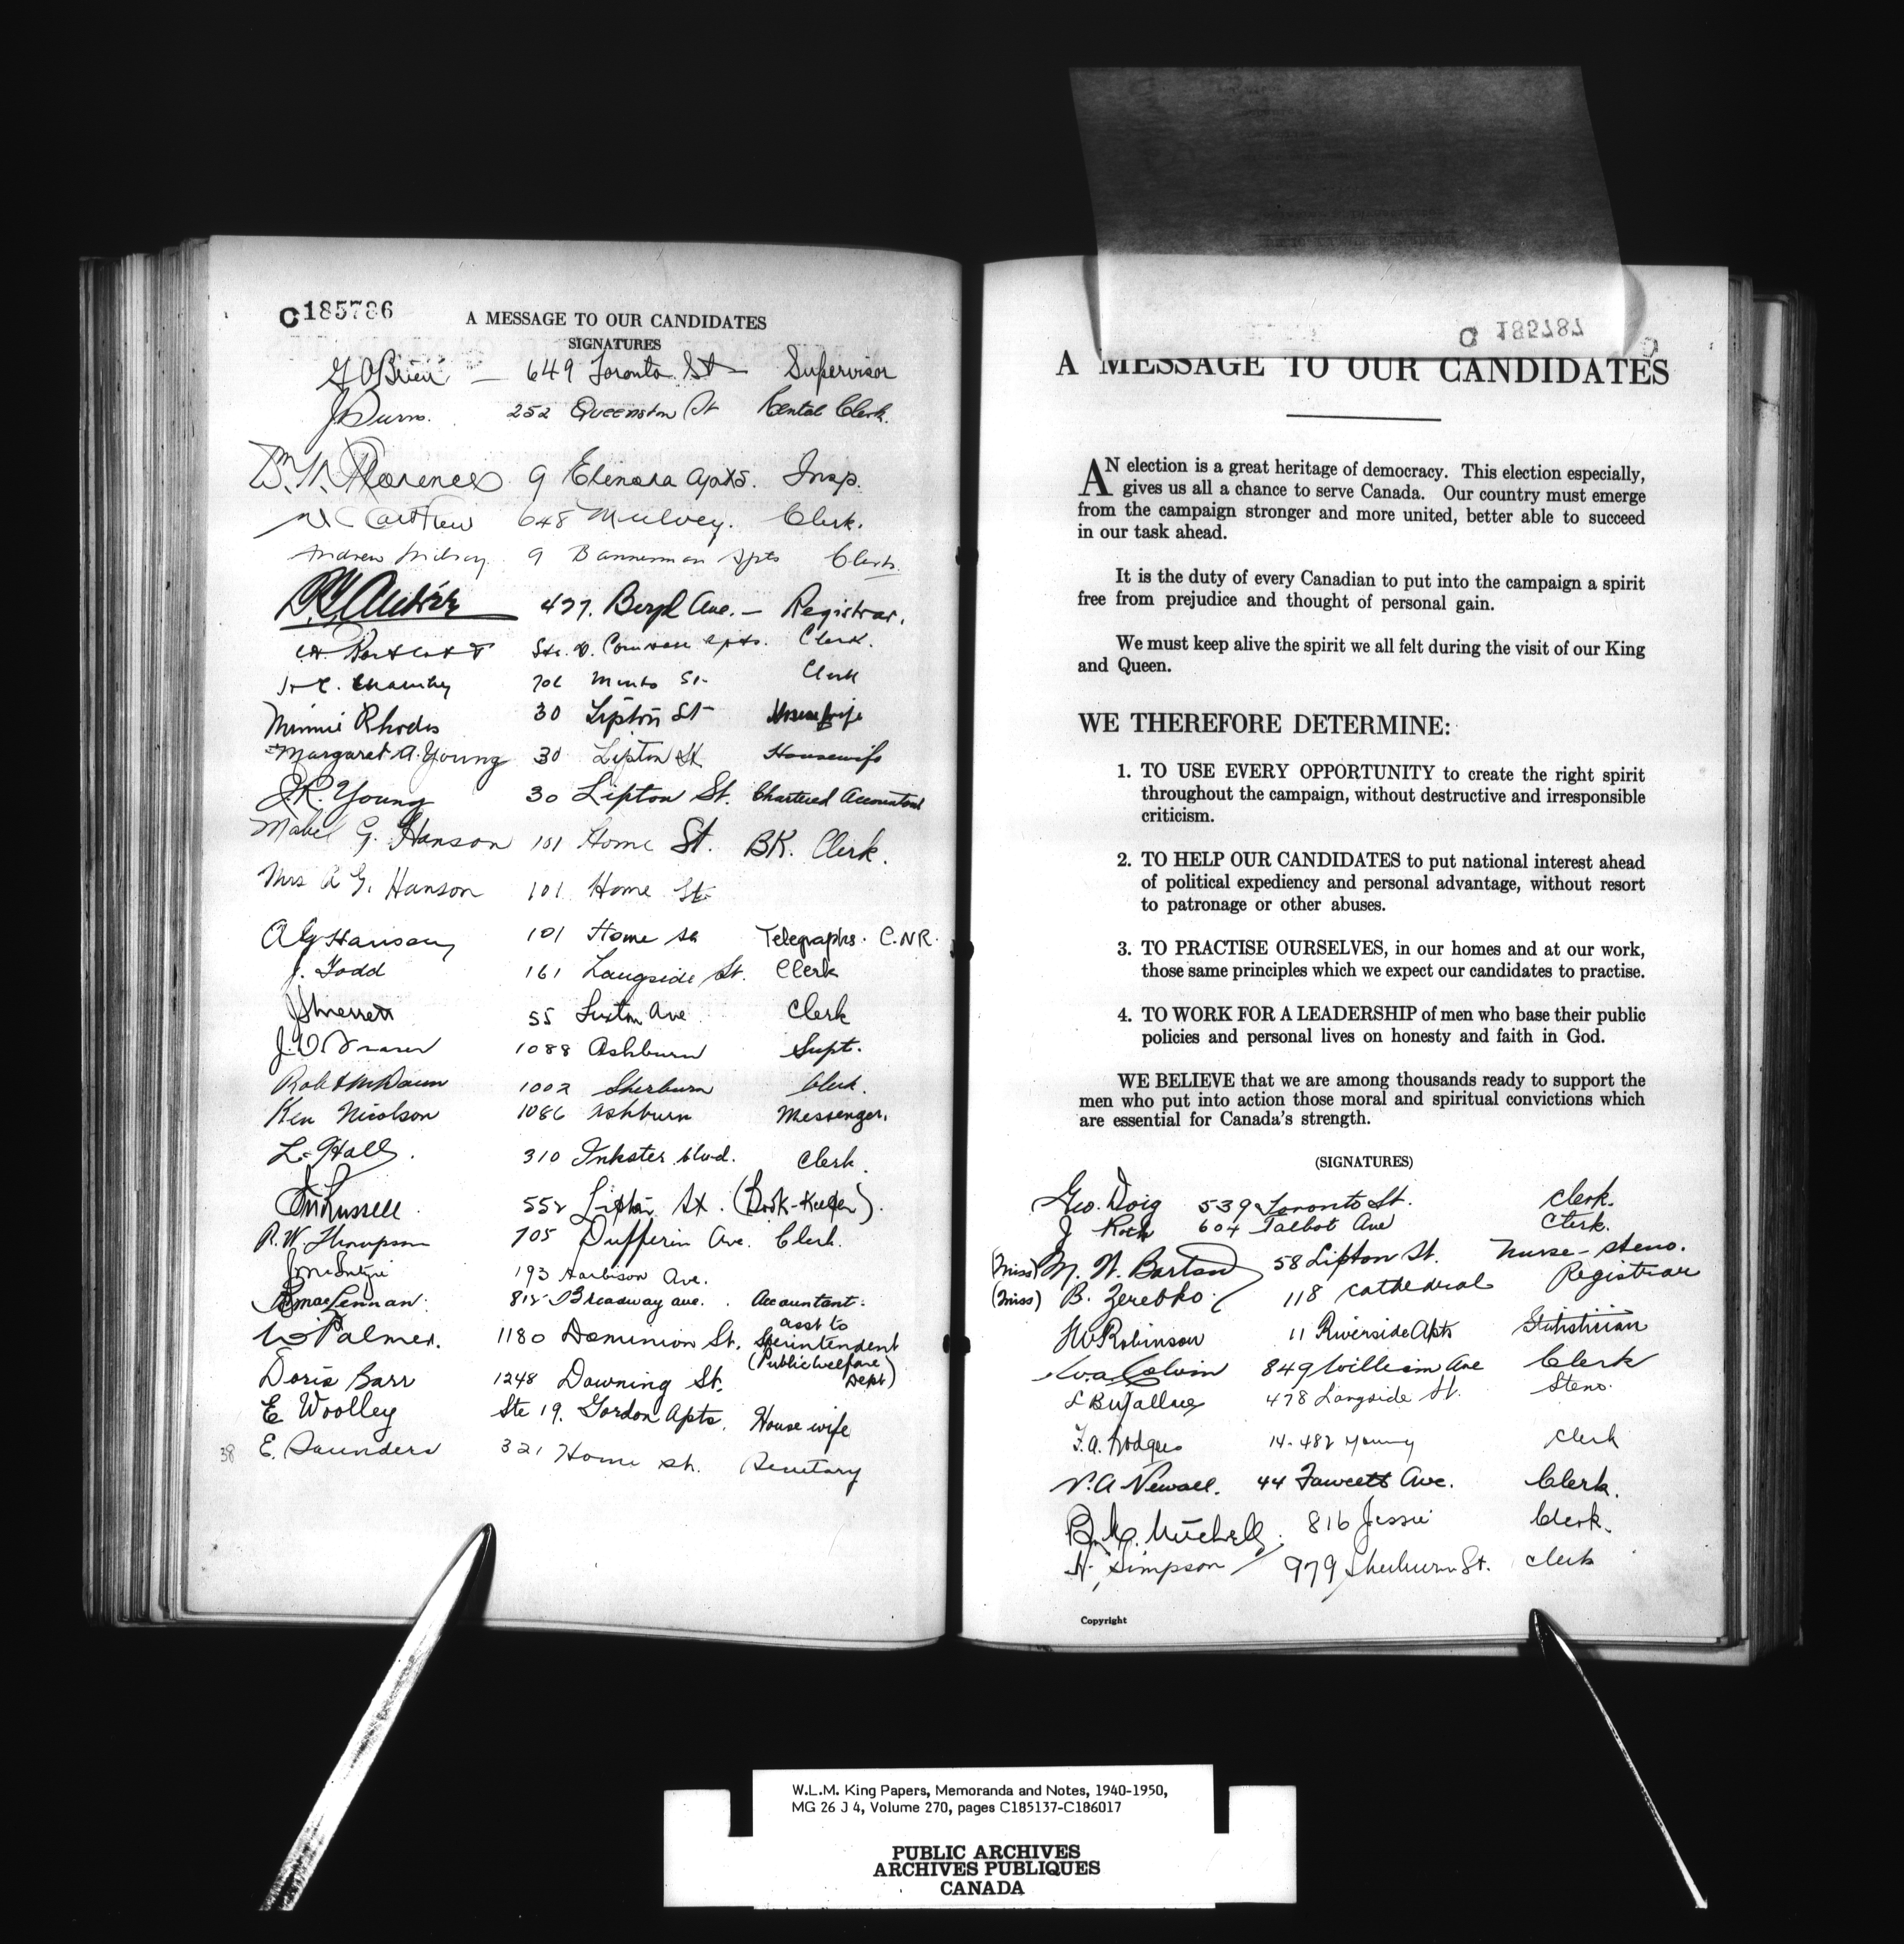 C185786
A MESSAGE TO OUR CANDIDATES
SIGNATURES
G O'Brien — 649 Toronto St — Supervisor
J. Burns. 252 Queenston St Rental Clerk.
9 Elenora Apts. Insp.
648 Mulvey. Clerk.
Andrew 9 Bannerman Apts Clerk.
437. Beryl Ave. — Registrar.
Apts. Clerk.
706 Minto St. Clerk
Minnie Rhodes 30 Lipton St Housewife
Margaret A. Young 30 Lipton St Housewife
J.R. Young 30 Lipton St. Chartered Accountant
Mabel G. Hanson 101 Home St. BK. Clerk.
Mrs A G. Hanson 101 Home St.
A G Hanson 101 Home St Telegraphs. C.N.R.
J. Todd 161 Langside St. Clerk
55 Luxton Ave Clerk
J. Fraser 1088 Ashburn Supt.
1002 Sherburn Clerk.
Ken Nicolson 1086 Ashburn Messenger.
L. Hall. 310 Inkster blvd. Clerk.
Russell. 552 Lipton St. (Book-Keeper).
R.W. Thompson 705 Dufferin Ave. Clerk.
J McIntyre 193 Harbison Ave.
MacLennan. 812 Broadway ave. Accountant.
W Palmer. 1180 Dominion St. asst to Superintendent
(Public Welfare Dept)
Doris Barr 1248 Downing St.
E Woolley Ste 19. Gordon Apts. House wife
38 E. Saunders 321 Home St. Secretary
C 185787
A MESSAGE TO OUR CANDIDATES
AN election is a great heritage of democracy. This election especially,
gives us all a chance to serve Canada. Our country must emerge
from the campaign stronger and more united, better able to succeed
in our task ahead.
It is the duty of every Canadian to put into the campaign a spirit
free from prejudice and thought of personal gain.
We must keep alive the spirit we all felt during the visit of our King
and Queen.
WE THEREFORE DETERMINE:
1. TO USE EVERY OPPORTUNITY to create the right spirit
throughout the campaign, without destructive and irresponsible
criticism.
2. TO HELP OUR CANDIDATES to put national interest ahead
of political expediency and personal advantage, without resort
to patronage or other abuses.
3. TO PRACTISE OURSELVES, in our homes and at our work,
those same principles which we expect our candidates to practise.
4. TO WORK FOR A LEADERSHIP of men who base their public
policies and personal lives on honesty and faith in God.
WE BELIEVE that we are among thousands ready to support the
men who put into action those moral and spiritual convictions which
are essential for Canada's strength.
(SIGNATURES)
Geo. Doig 539 Toronto St. Clerk.
J Roth 604 Talbot Ave Clerk.
(Miss) M. N. Barton 58 Lipton St. Nurse-steno.
(Miss) B. Zerebko. 118 Cathedral Registrar
Robinson 11 Riverside Apts Statistician
Colvin 849 William Ave Clerk
L B Wallace 478 Langside St. Steno.
F.A. Hodges 14-482 Young Clerk
V.A. Newall. 44 Fawcett Ave. Clerk.
Mitchell. 816 Jessie Clerk.
N. Simpson 979 Sherburn St. Clerk
Copyright
W.L.M. King Papers, Memoranda and Notes, 1940-1950,
MG 26 J 4, Volume 270, pages C185137-C186017
PUBLIC ARCHIVES
ARCHIVES PUBLIQUES
CANADA